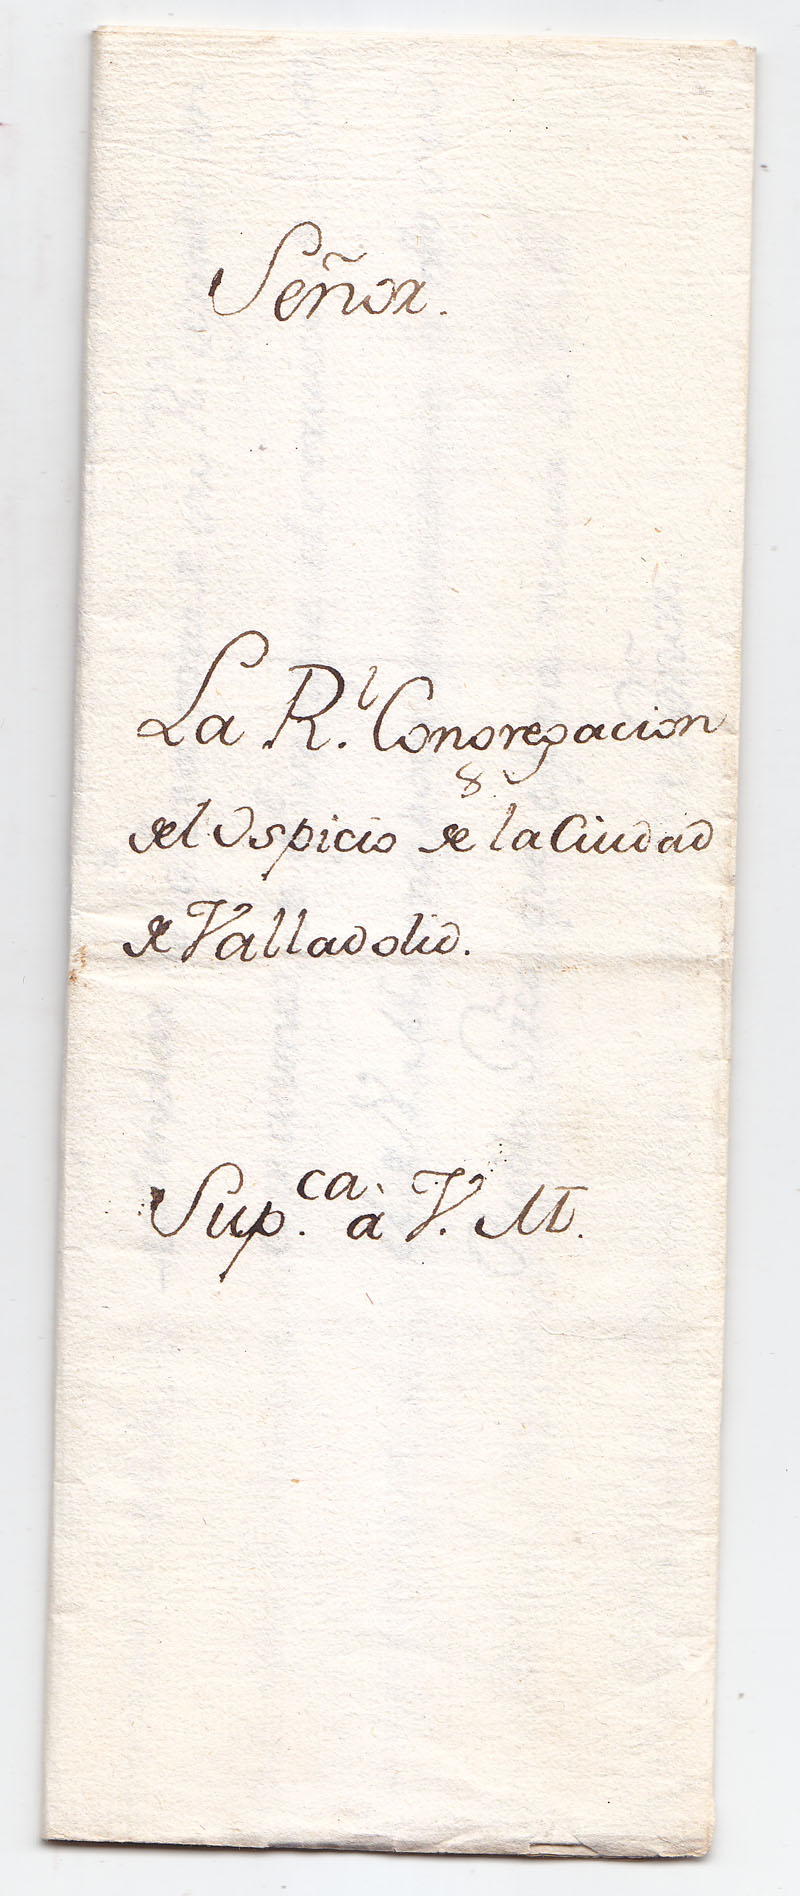 Señor.
La Rl. Congregacion
del Ospicio de la Ciudad
de Valladolid.
Supca. à V. M.